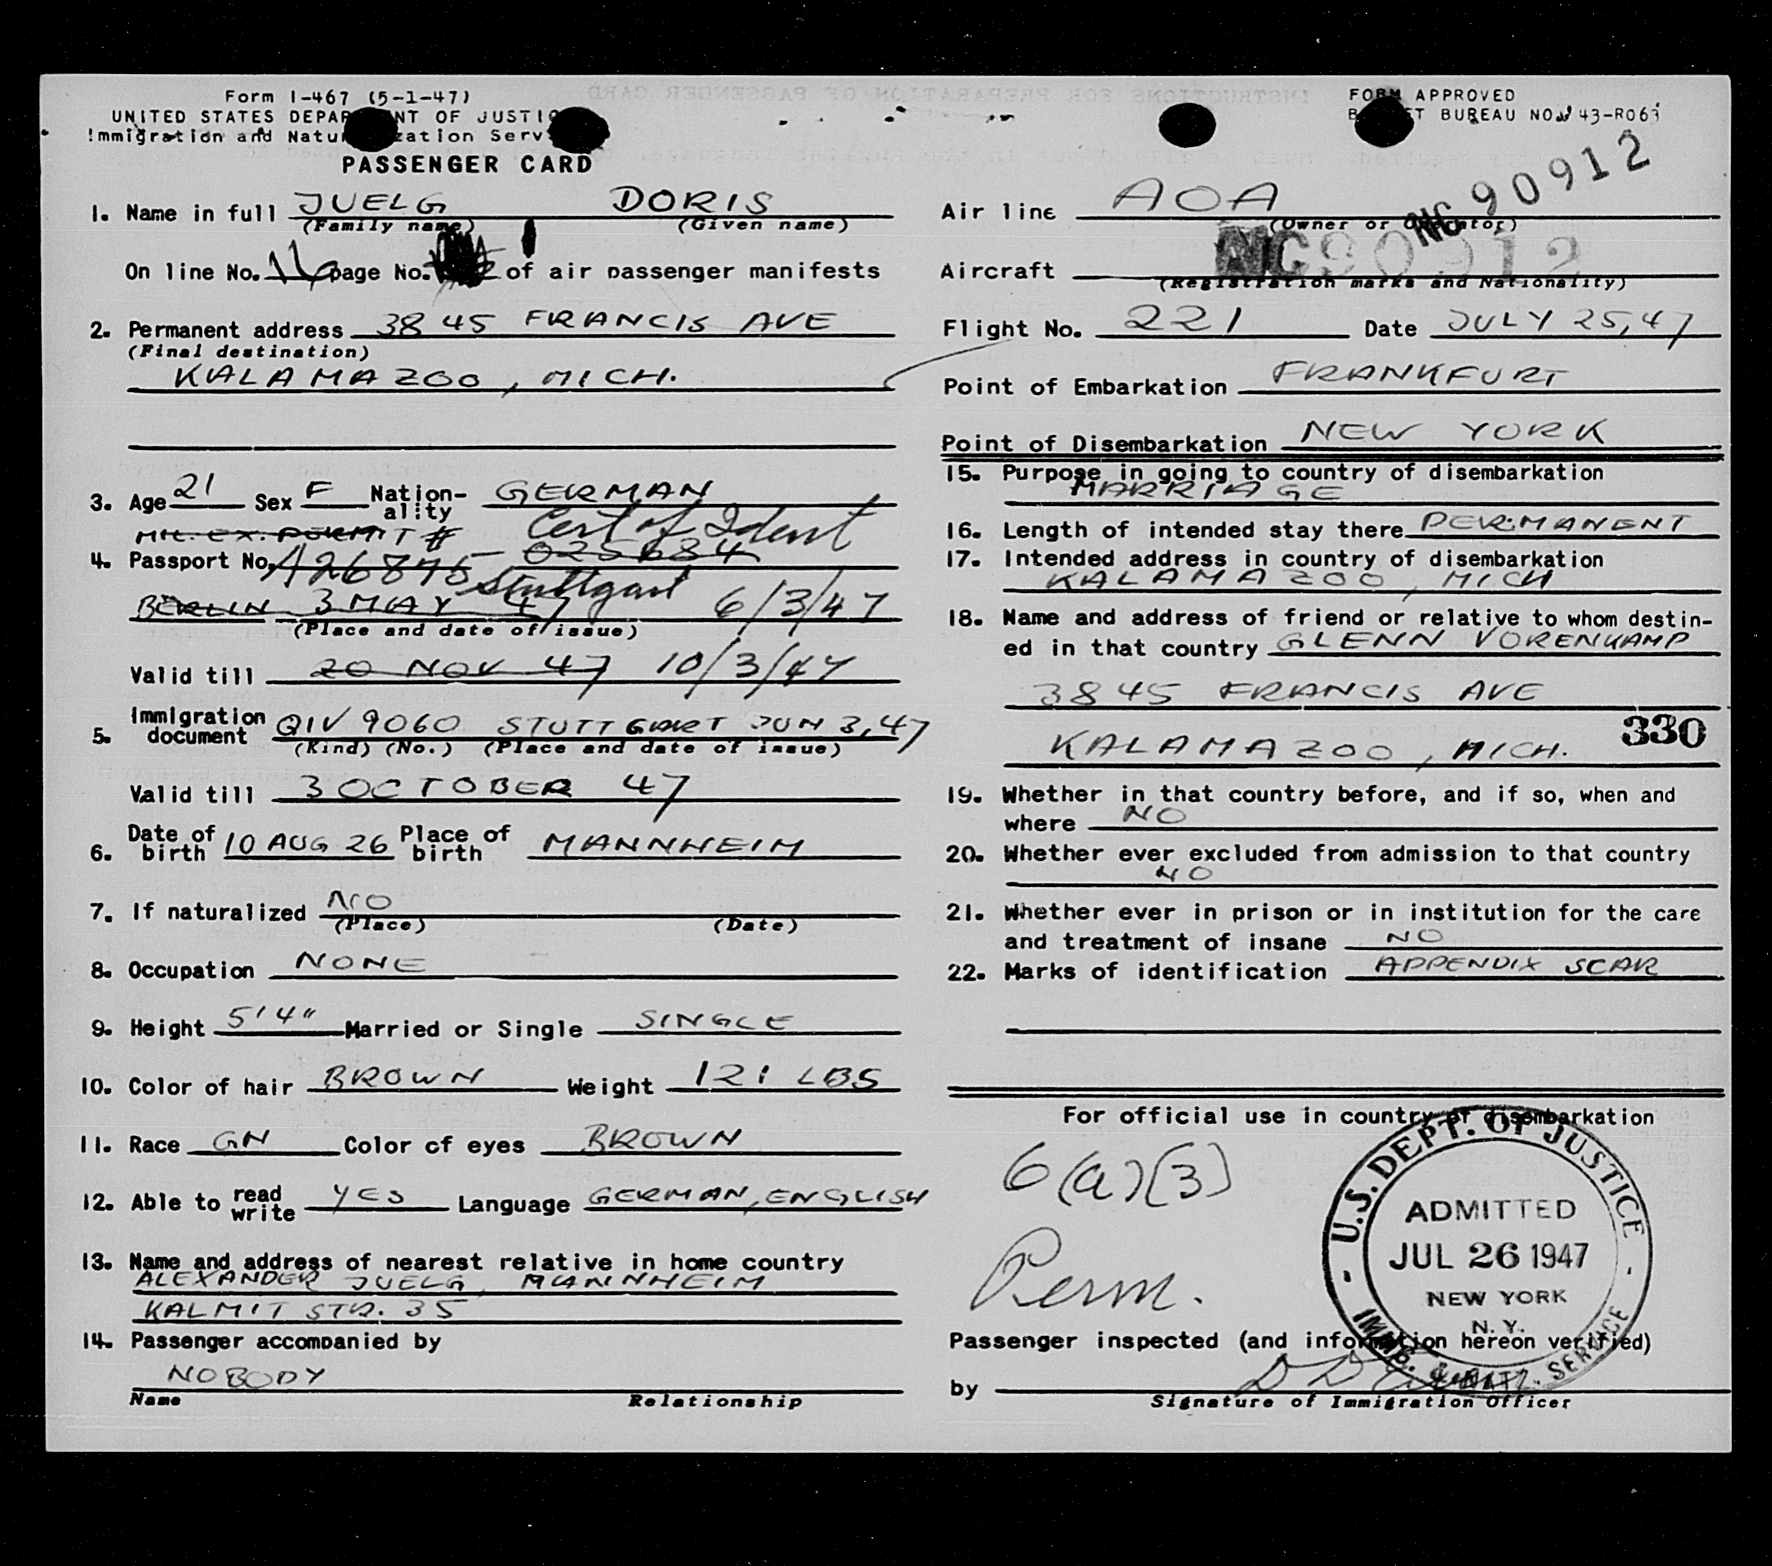 Form I-467 (5-1-47)
UNITED STATES DEPAR NT OF JUSTIC
Immigration and Natu zation Serv
PASSENGER CARD
FORM APPROVED
B T BUREAU NO. 43-R063
1. Name in full JUELG DORIS
(Family name) (Given name)
On line No. 16 page No. of air passenger manifests
2. Permanent address 3845 FRANCIS AVE
(Final destination)
KALAMAZOO, MICH.
3. Age 21 Sex F Nation-ality GERMAN
MIL. EX. PERMIT # Cert of Ident
4. Passport No. A26876 025684
Stuttgart
BERLIN 3 MAY 47 6/3/47
(Place and date of issue)
Valid till 20 NOV 47 10/3/47
5. Immigration document QIV 9060 STUTTGART JUN 3, 47
(Kind) (No.) (Place and date of issue)
Valid till 3 OCTOBER 47
6. Date of birth 10 AUG 26 Place of birth MANNHEIM
7. If naturalized NO
(Place) (Date)
8. Occupation NONE
9. Height 5'4" Married or Single SINGLE
10. Color of hair BROWN Weight 121 LBS
11. Race GN Color of eyes BROWN
12. Able to read write YES Language GERMAN, ENGLISH
13. Name and address of nearest relative in home country
ALEXANDER JUELG, MANNHEIM
KALMIT STR. 35
14. Passenger accompanied by
NOBODY
Name Relationship
Air line AOA NC90912
(Owner or Operator)
Aircraft NC90912
(Registration marks and Nationality)
Flight No. 221 Date JULY 25, 47
Point of Embarkation FRANKFURT
Point of Disembarkation NEW YORK
15. Purpose in going to country of disembarkation
MARRIAGE
16. Length of intended stay there PERMANENT
17. Intended address in country of disembarkation
KALAMAZOO, MICH
18. Name and address of friend or relative to whom destin-
ed in that country GLENN VORENKAMP
3845 FRANCIS AVE
330
KALAMAZOO, MICH.
19. Whether in that country before, and if so, when and
where NO
20. Whether ever excluded from admission to that country
NO
21. Whether ever in prison or in institution for the care
and treatment of insane NO
22. Marks of identification APPENDIX SCAR
For official use in country of disembarkation
6(a)(3)
Perm.
U.S. DEPT. OF JUSTICE
ADMITTED
JUL 26 1947
NEW YORK
N. Y.
IMMG. & NATZ. SERVICE
Passenger inspected (and information hereon verified)
by
Signature of Immigration Officer